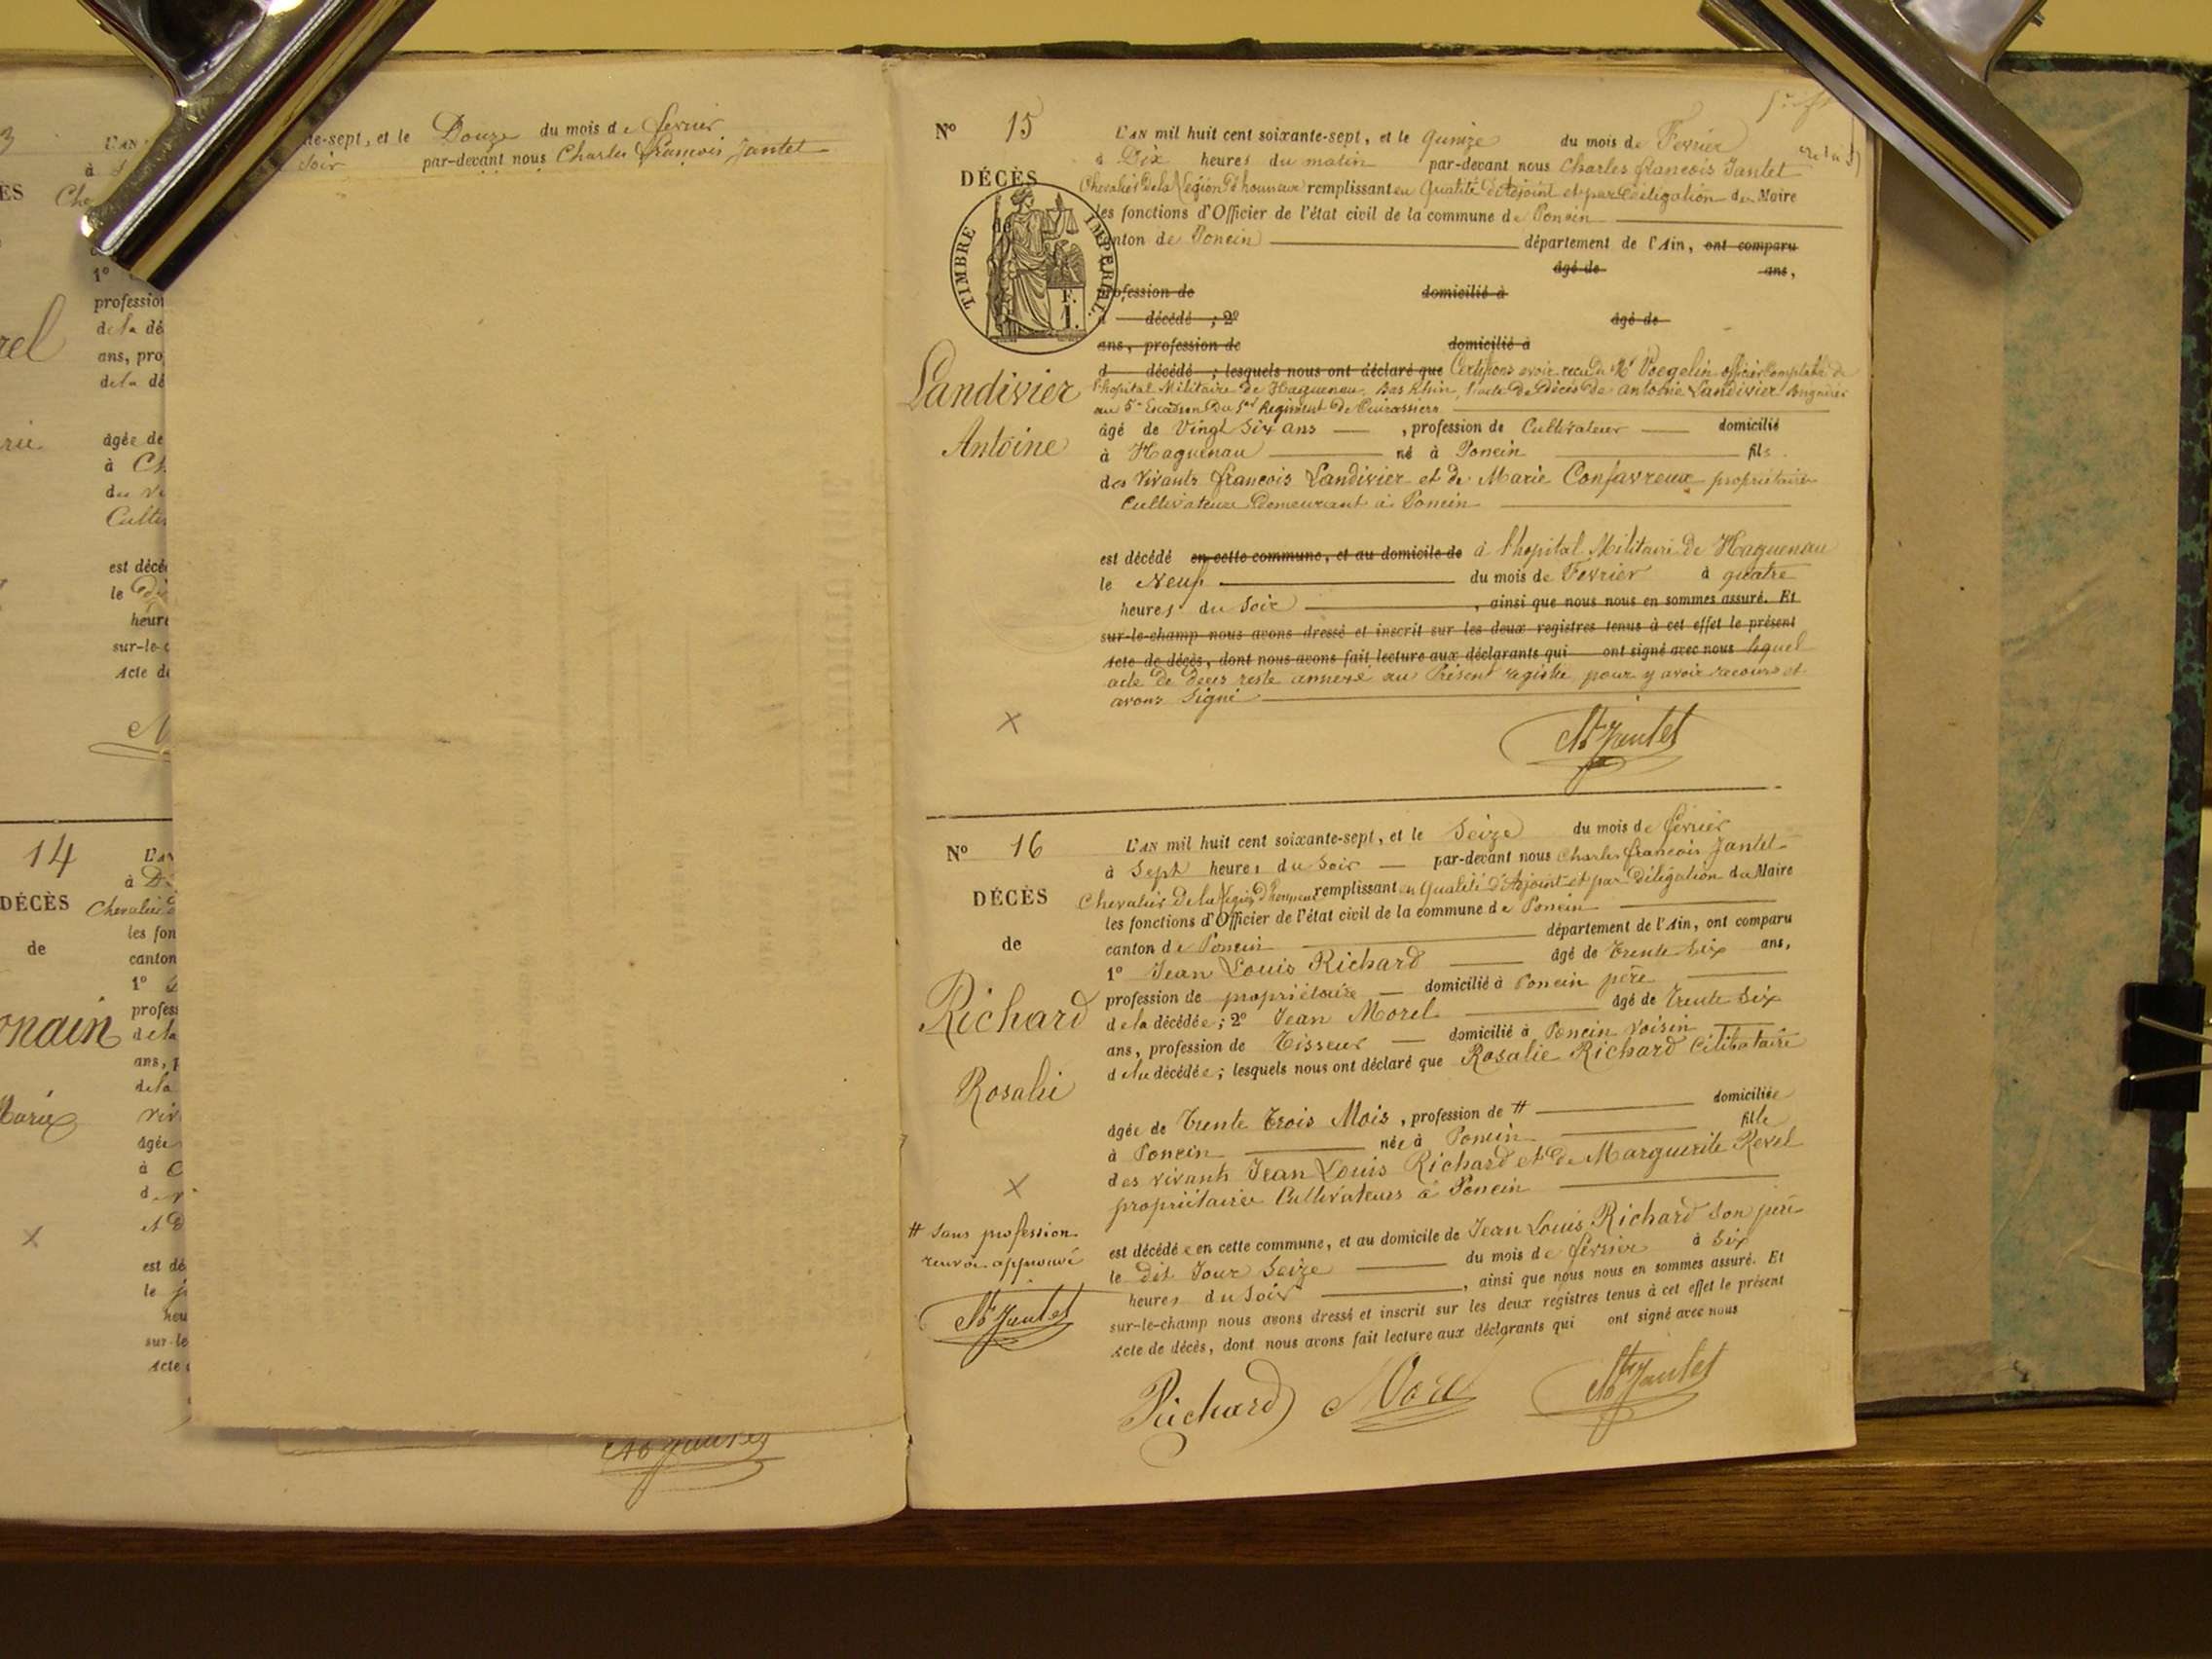 3
L'AN
à
ES
Che
1º
profession
de la dé
rel
ans, pro
de la dé
rie
agée de
à Ch
du
Culti
est décé
le
heure
sur-le-c
acte de
14
L'AN
à
DÉCÈS
Chevalier
les fon
de
canton
1º
profess
onain
de la
ans, p
de la
Marie
viv
agée
à C
d
X
est dé
le
heu
sur-le
acte
te-sept, et le Douze du mois de février
soir par-devant nous Charles François Jantet
Nº 15
L'AN mil huit cent soixante-sept, et le quinze du mois de Fevrier
à Dix heures du matin par-devant nous Charles francois Jantet
DÉCÈS
Chevalier De la Légion D'honneur remplissant en Qualité d'Adjoint et par Délégation du Maire
de
les fonctions d'Officier de l'état civil de la commune de Poncin
TIMBRE IMPÉRIAL
1 F.
canton de Poncin département de l'Ain, ont comparu
âgé de ans,
profession de domicilié à
d décédé ; 2º âgé de
ans, profession de domicilié à
d décédé ; lesquels nous ont déclaré que Certifions avoir reçu de Mr Voegelin officier Comptable de
Landivier
l'hopital Militaire de Haguenau, Bas Rhin, l'acte de Décès de antoine Landivier
au 5e Escadron Du 1er Regiment de Cuirassiers
Antoine
âgé de Vingt Six ans , profession de Cultivateur domicilié
à Haguenau né à Poncin fils
des vivants francois Landivier et de Marie Confavreux propriétaires
Cultivateurs Demeurant à Poncin
est décédé en cette commune, et au domicile de à l'hopital Militaire De Haguenau
le Neuf du mois de Fevrier à quatre
heures du Soir , ainsi que nous nous en sommes assuré. Et
sur-le-champ nous avons dressé et inscrit sur les deux registres tenus à cet effet le présent
acte de décès, dont nous avons fait lecture aux déclarants qui ont signé avec nous lequel
acte de deces reste annexé au Présent registre pour y avoir recours et
avons Signé
X
Jantet
Nº 16
L'AN mil huit cent soixante-sept, et le Seize du mois de février
à Sept heures du Soir par-devant nous Charles francois Jantet
DÉCÈS
Chevalier De la Légion D'honneur remplissant en Qualité d'Adjoint et par Délégation du Maire
les fonctions d'Officier de l'état civil de la commune de Poncin
de
canton de Poncin département de l'Ain, ont comparu
1º Jean Louis Richard âgé de trente Six ans,
profession de propriétaire domicilié à Poncin père
Richard
de la décédée ; 2º Jean Morel âgé de trente Six
ans, profession de Tisseur domicilié à Poncin Voisin
de la décédée ; lesquels nous ont déclaré que Rosalie Richard Célibataire
Rosalie
âgée de trente trois Mois , profession de # domiciliée
à Poncin née à Poncin fille
des vivants Jean Louis Richard et de Marguerite Revel
propriétaires Cultivateurs à Poncin
X
est décédée en cette commune, et au domicile de Jean Louis Richard Son père
le dit Jour Seize du mois de février à Six
heures du Soir , ainsi que nous nous en sommes assuré. Et
sur-le-champ nous avons dressé et inscrit sur les deux registres tenus à cet effet le présent
acte de décès, dont nous avons fait lecture aux déclarants qui ont signé avec nous
# Sans profession
renvoi approuvé
Jantet
Richard Morel Jantet